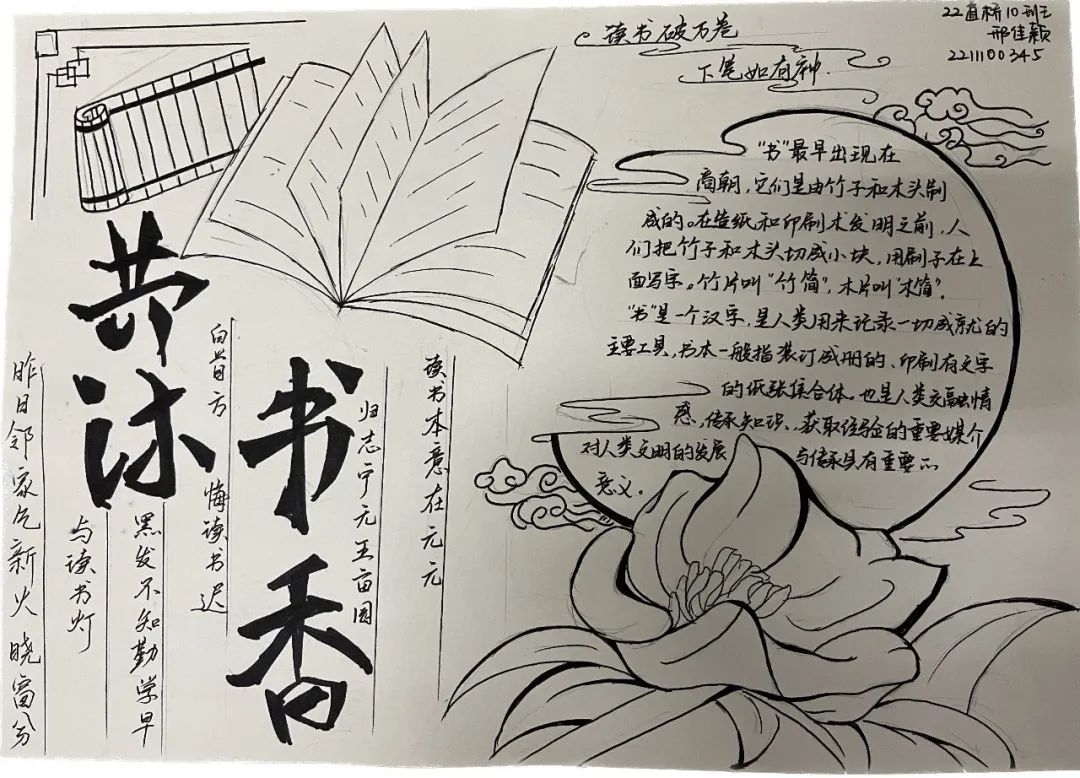 读书破万卷
下笔如有神.
22道桥10班
邢佳颖
2211100345
"书"最早出现在
商朝,它们是由竹子和木头制
成的。在造纸和印刷术发明之前,人
们把竹子和木头切成小块,用刷子在上
面写字。竹片叫"竹简",木片叫"木简".
"书"是一个汉字,是人类用来记录一切成就的
主要工具,书本一般指装订成册的、印刷有文字
的纸张集合体.也是人类交融情
感,传承知识、获取经验的重要媒介
对人类文明的发展 与传承具有重要的
意义.
共沐
书香
读书本意在元元
归志宁元五亩园
白首方
悔读书迟
黑发不知勤学早
与读书灯
昨日邻家乞新火晓窗分